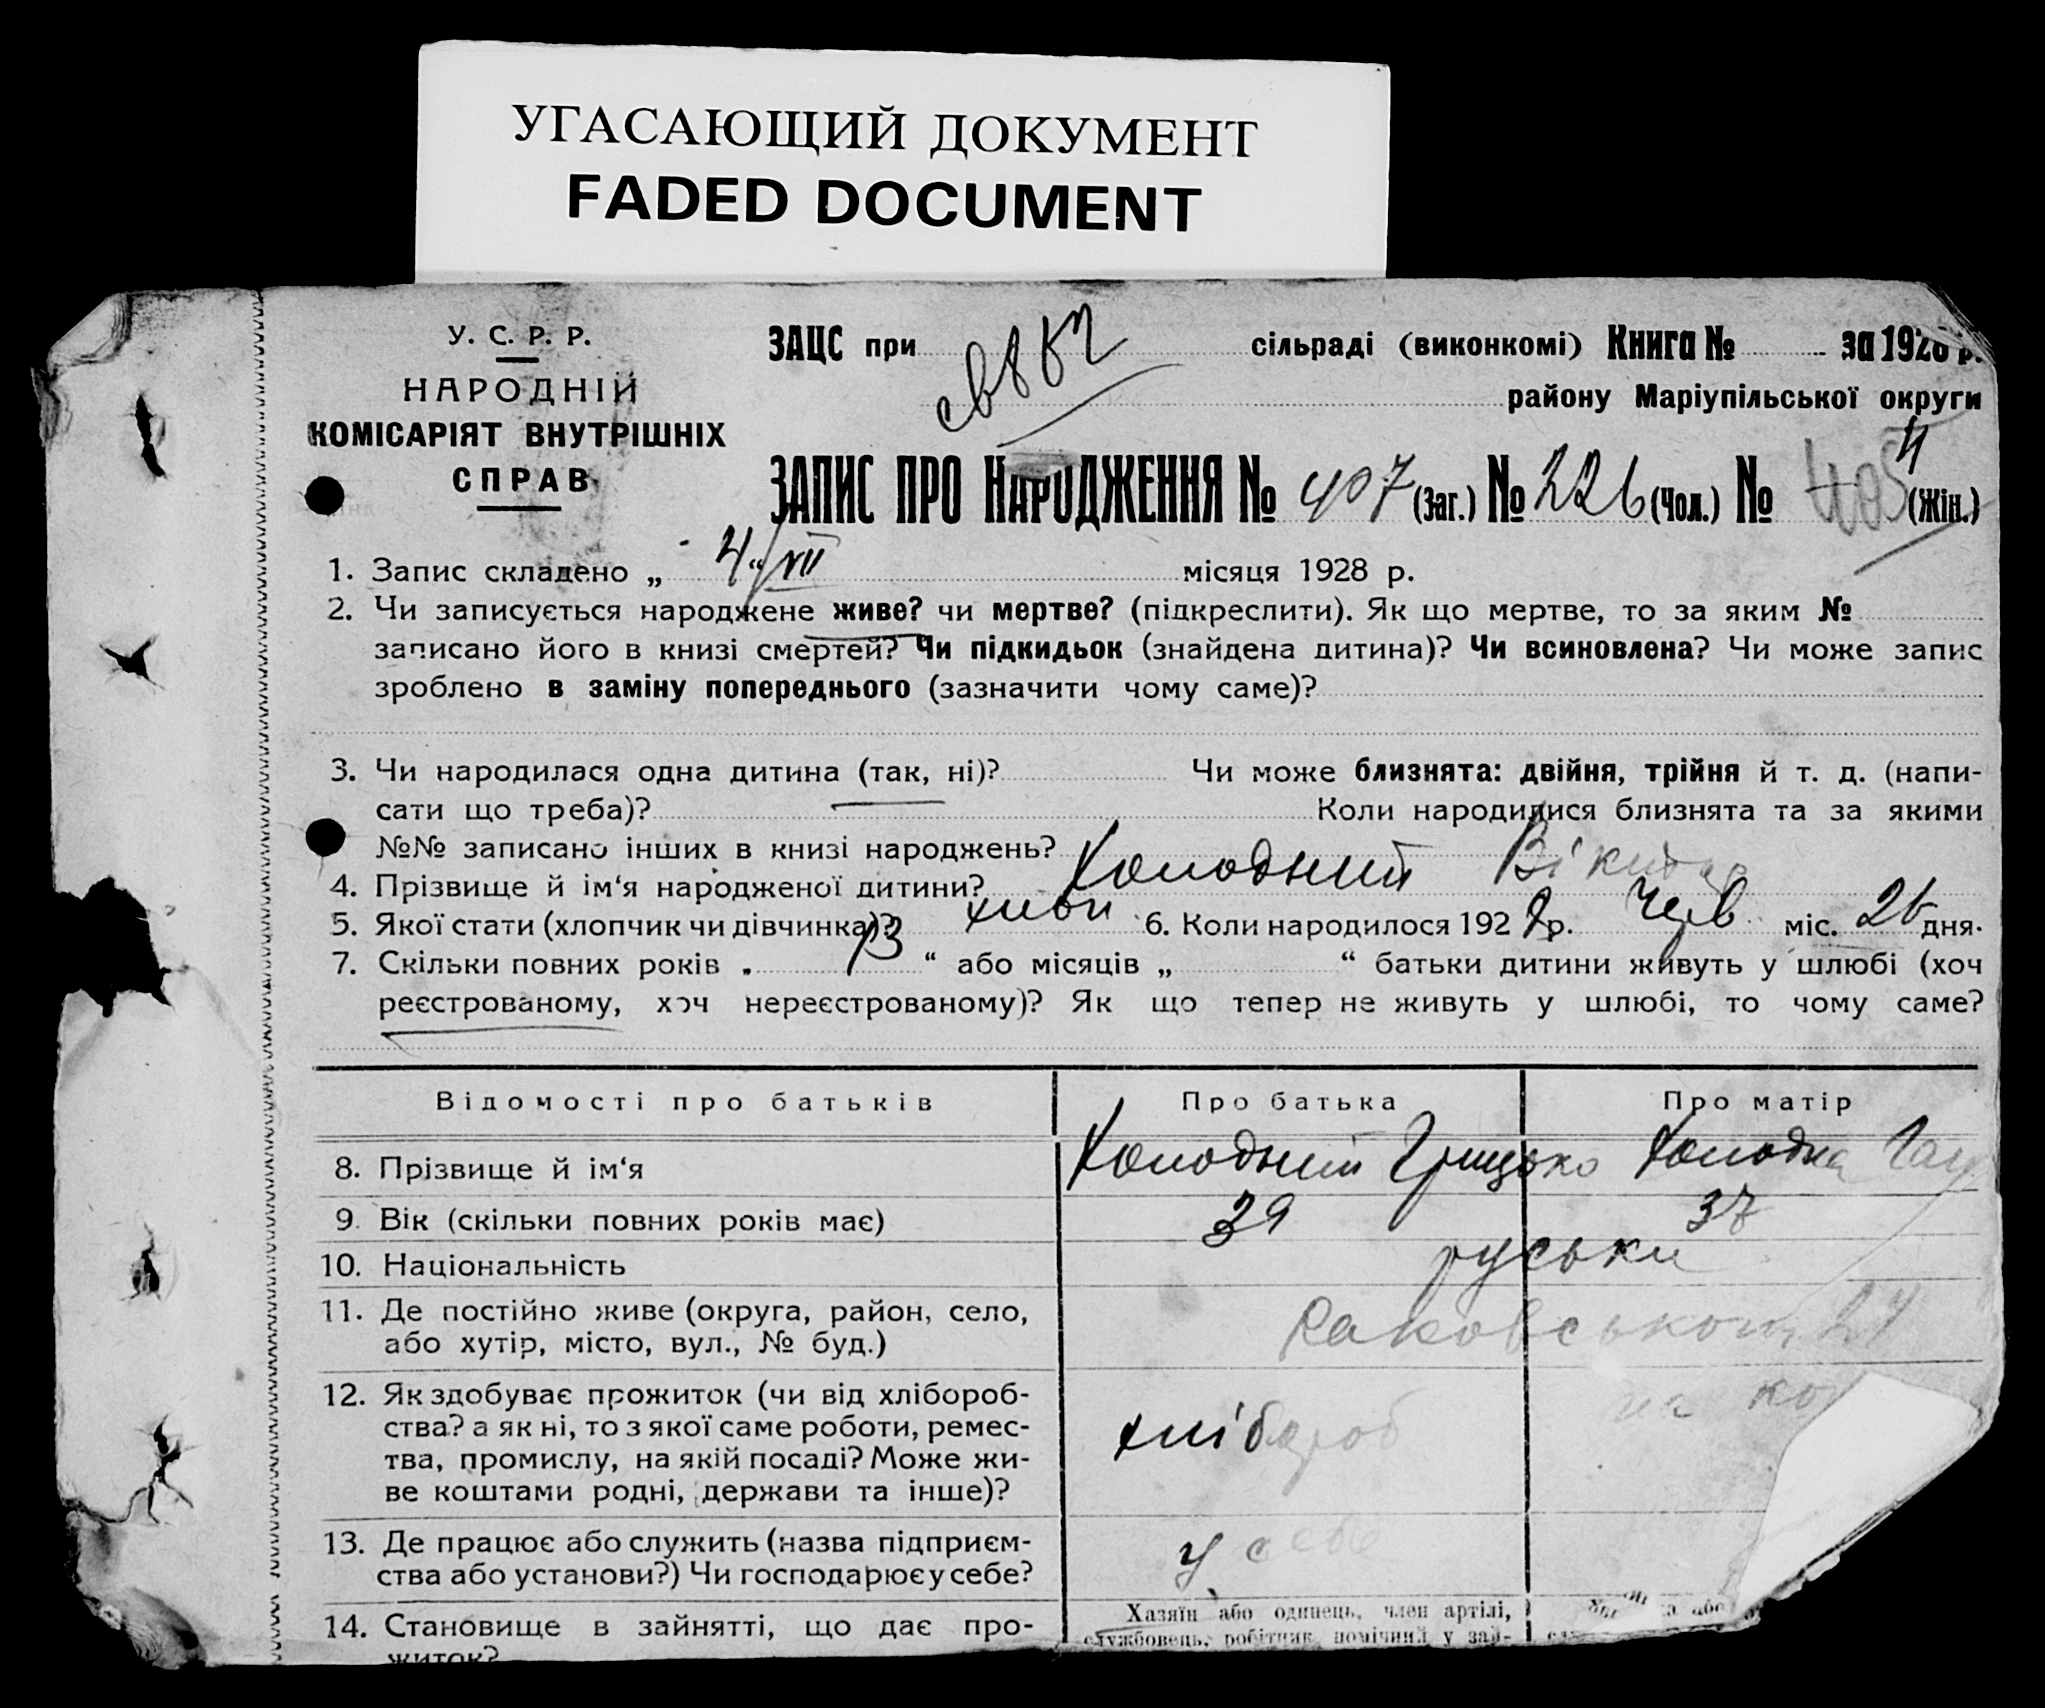 УГАСАЮЩИЙ ДОКУМЕНТ
FADED DOCUMENT
У. С. Р. Р.
НАРОДНІЙ
КОМІСАРІЯТ ВНУТРІШНІХ
СПРАВ
ЗАЦС при сільраді (виконкомі) Книга № за 1928 р.
району Маріупільської округи
ЗАПИС ПРО НАРОДЖЕННЯ № 407 (Заг.) № 226 (Чол.) № (Жін.)
1. Запис складено „ 4/VII “ місяця 1928 р.
2. Чи записується народжене живе? чи мертве? (підкреслити). Як що мертве, то за яким №
записано його в книзі смертей? Чи підкидьок (знайдена дитина)? Чи всиновлена? Чи може запис
зроблено в заміну попереднього (зазначити чому саме)?
3. Чи народилася одна дитина (так, ні)? Чи може близнята: двійня, трійня й т. д. (напи-
сати що треба)? Коли народилися близнята та за якими
№№ записано інших в книзі народжень?
4. Прізвище й ім‘я народженої дитини? Холодний
5. Якої стати (хлопчик чи дівчинка)? 6. Коли народилося 1928 р. Черв міс. 26 дня.
7. Скільки повних років „ 13 “ або місяців „ “ батьки дитини живуть у шлюбі (хоч
реєстрованому, хоч нереєстрованому)? Як що тепер не живуть у шлюбі, то чому саме?
Відомості про батьків Про батька Про матір
8. Прізвище й ім‘я Холодний Грицько Холодна
9. Вік (скільки повних років має) 39 37
10. Національність руськи
11. Де постійно живе (округа, район, село,
або хутір, місто, вул., № буд.) Раковського 24
12. Як здобуває прожиток (чи від хлібороб-
ства? а як ні, то з якої саме роботи, ремес-
тва, промислу, на якій посаді? Може жи-
ве коштами родні, держави та інше)? хлібороб на
13. Де працює або служить (назва підприєм-
ства або установи?) Чи господарює у себе? у себе
14. Становище в зайнятті, що дає про-
житок?
Хазяїн або одинець, член артілі,
службовець, робітник, помічний у зай-